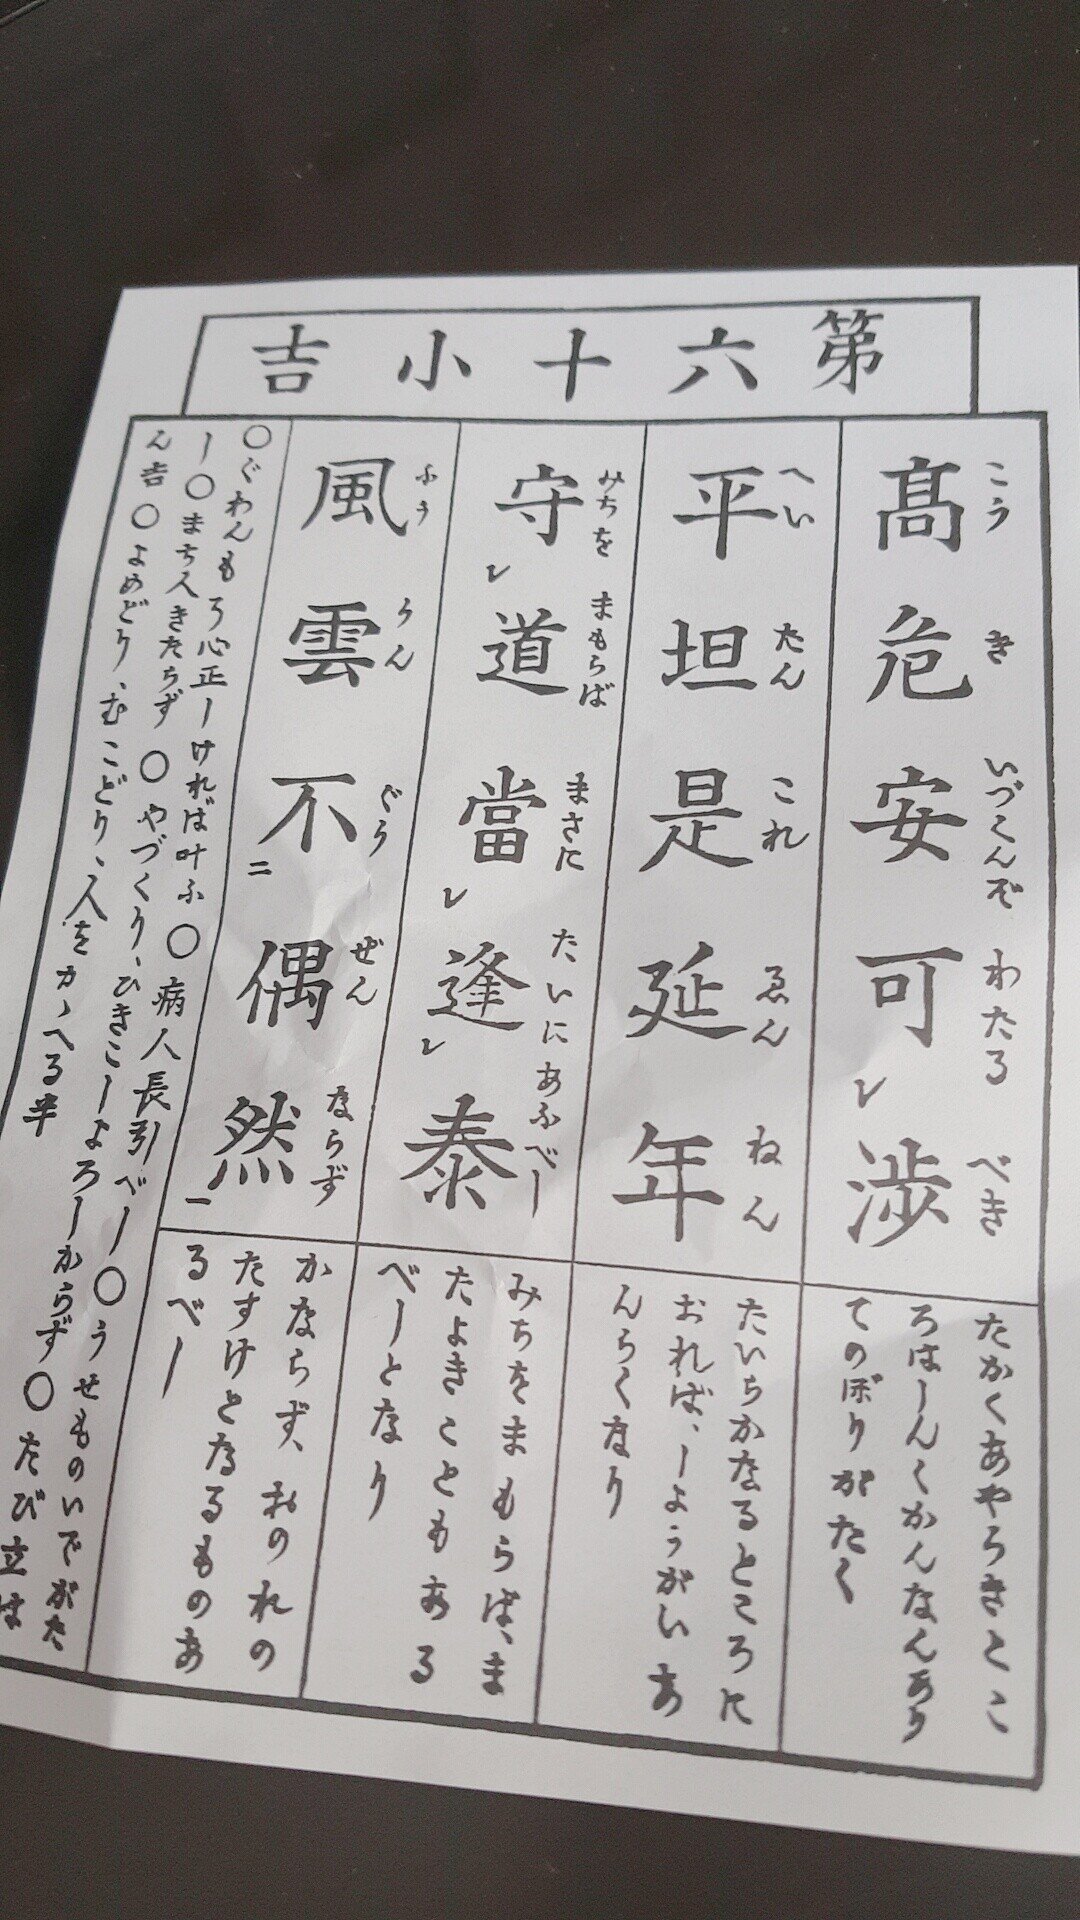 第六十小吉
髙危安可レ渉
こう き いづくんぞ わたる べき
たかくあやうきとこ
ろはしんくかんなんあり
てのぼりがたく
平坦是延年
へい たん これ ゑん ねん
たいらかなるところに
おれば、しようがいあ
んらくなり
守レ道當レ逢レ泰
みちを まもらば まさに たいにあふべし
みちをまもらば、ま
たよきこともある
べしとなり
風雲不二偶然一
ふう うん ぐう ぜん ならず
かならず、おのれの
たすけとなるものあ
るべし
○ぐわんもう心正しければ叶ふ○病人長引べし○うせものいでがた
し○まち人きたらず○やづくり、ひきこしよろしからず○たび立は
ん吉○よめどり、むこどり、人をかゝへる半